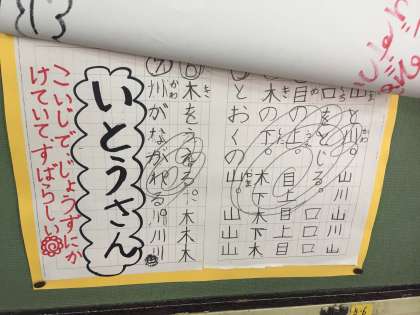 山と川。山川山
口をとじる。口口口
目の上。目上目上目
木の下。木下木下木
とおくの山。山山山
⑥木をうえる。木木
⑦川がながれる川川川
いとうさん
こいじで、じょうずにか
けていて、すばらしい